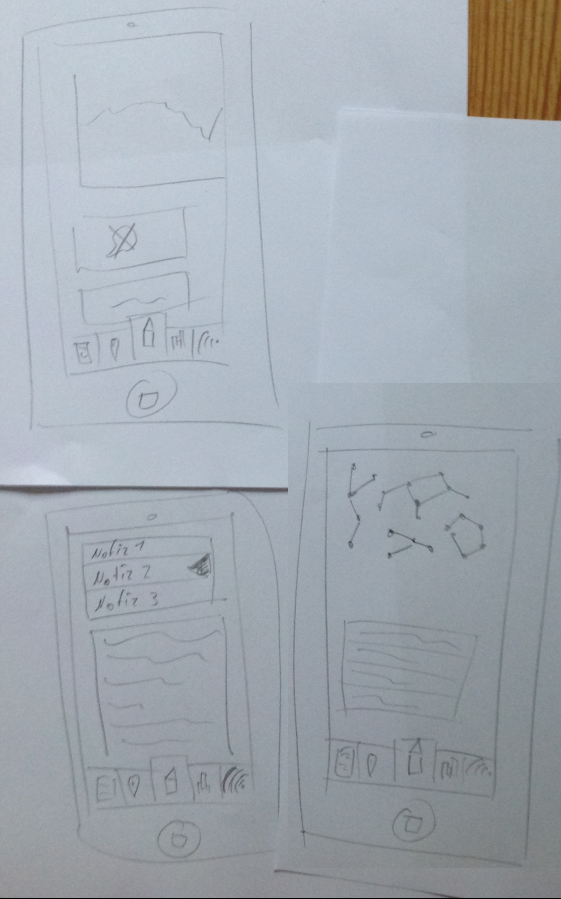 Notiz 1
Notiz 2
Notiz 3